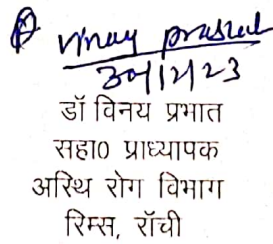 vinay prasad
30/12/23
डॉ विनय प्रभात
सहा0 प्राध्यापक
अस्थि रोग विभाग
रिम्स, राँची